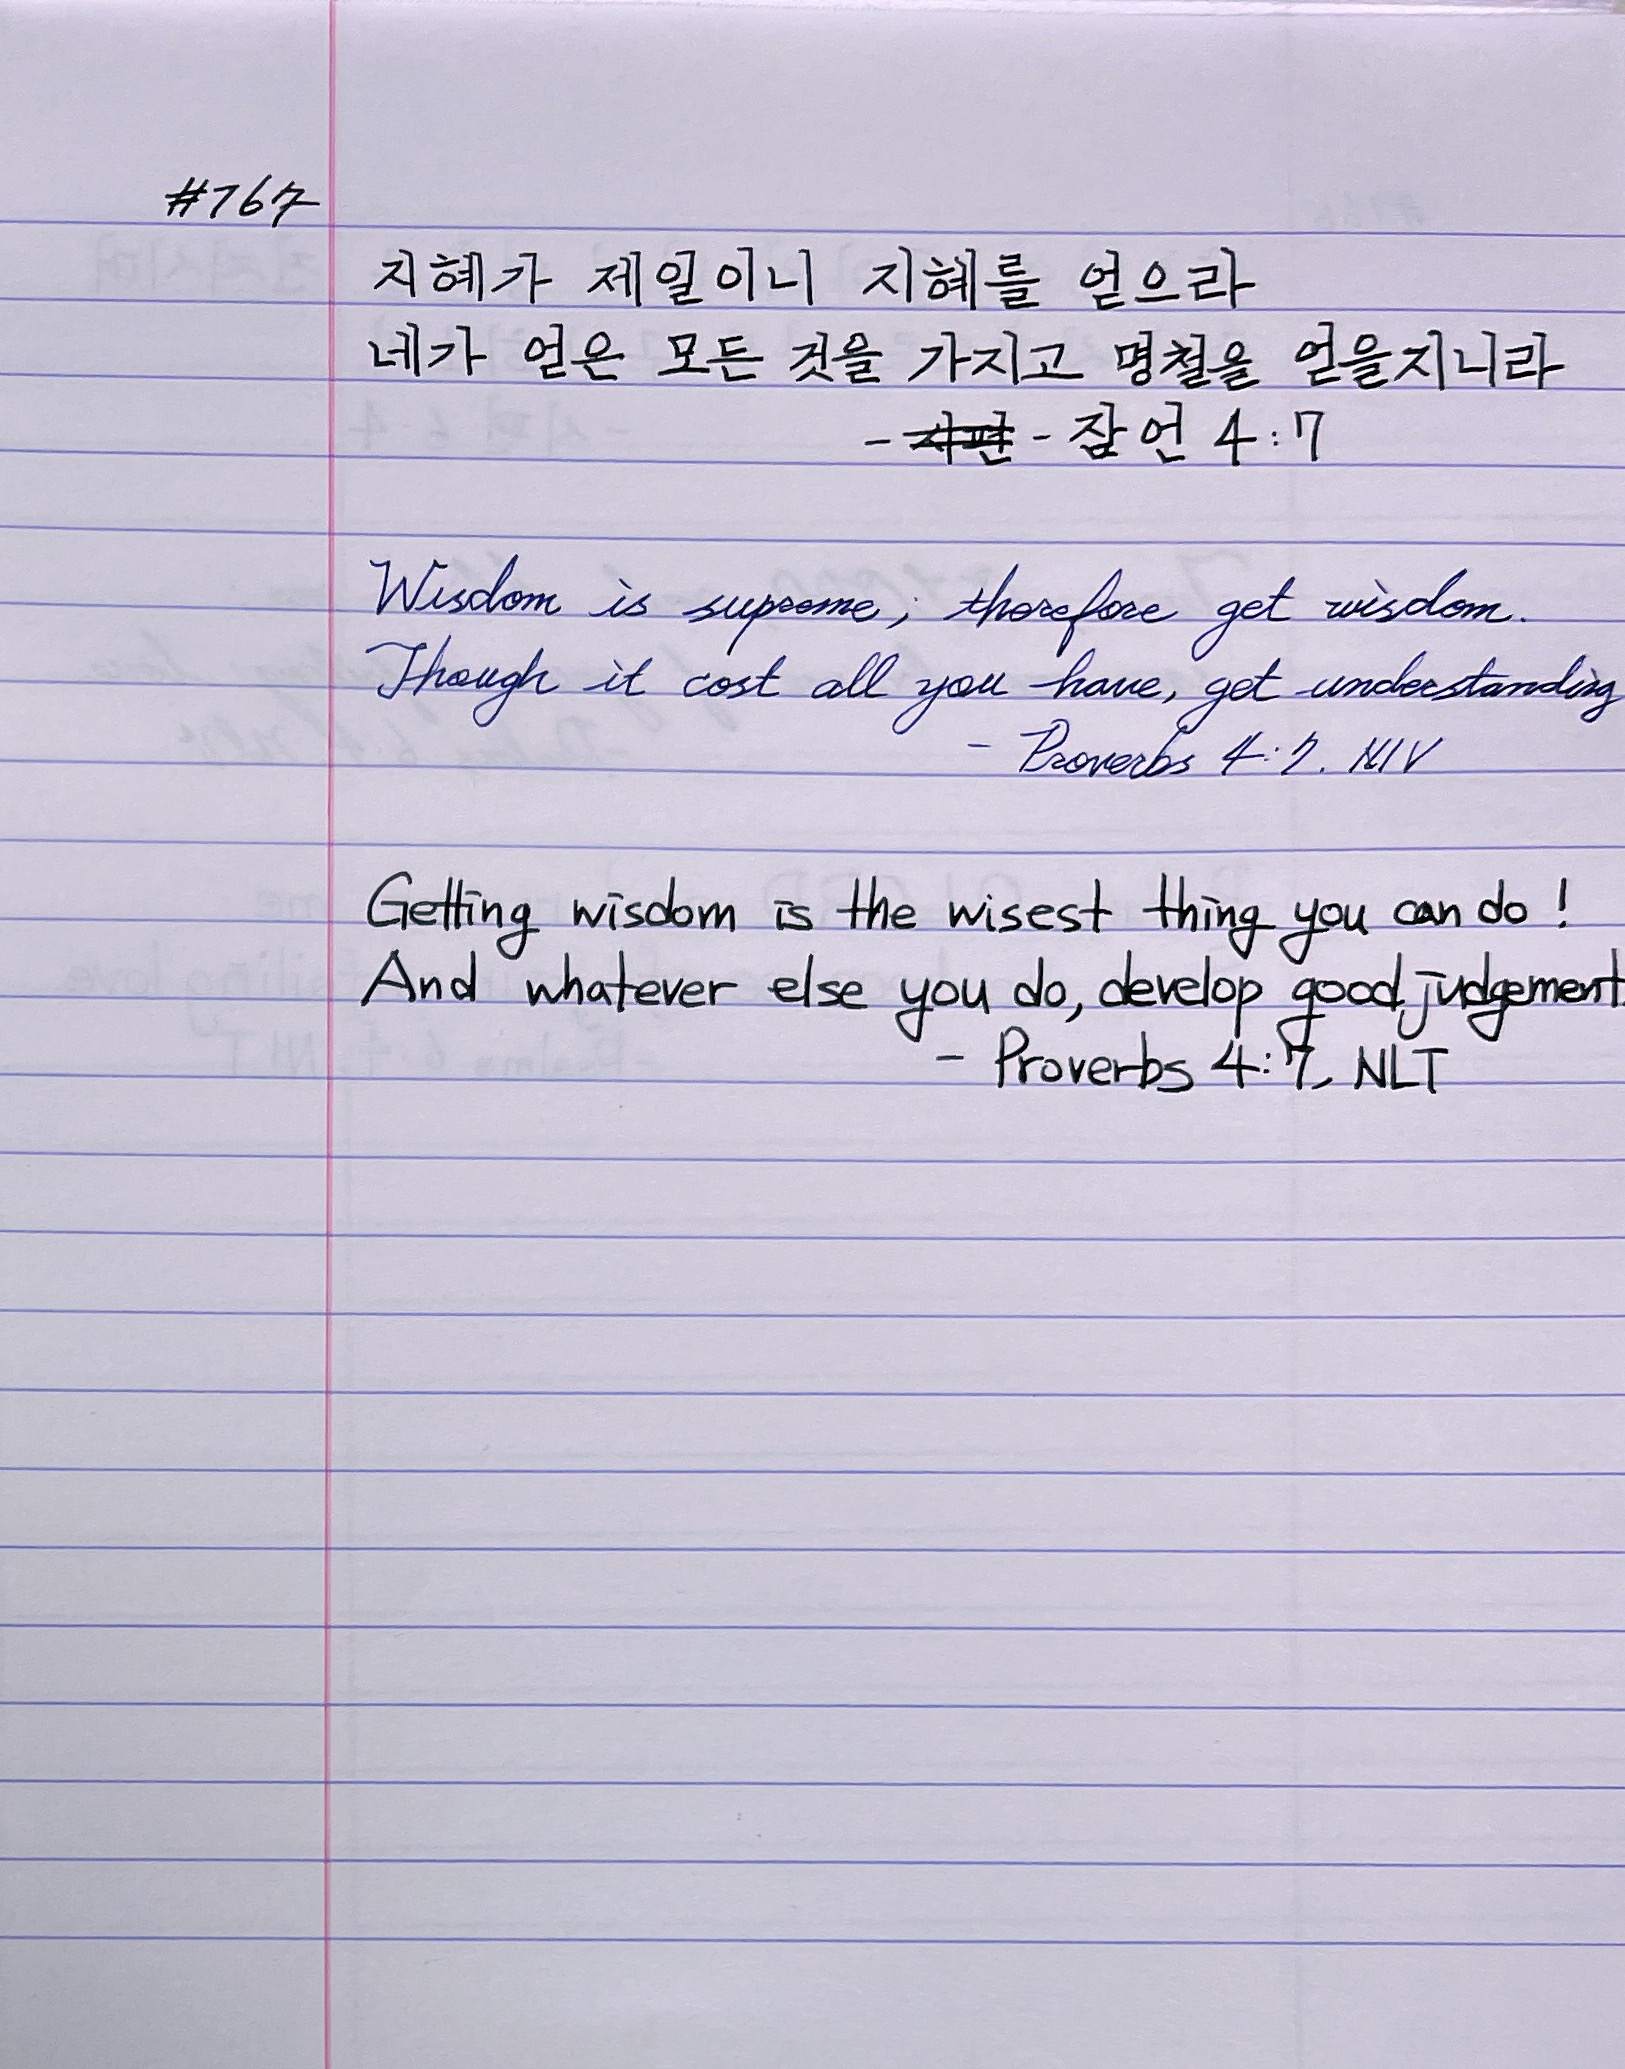 #767
지혜가 제일이니 지혜를 얻으라
네가 얻은 모든 것을 가지고 명철을 얻을지니라
- 시편 - 잠언 4:7
Wisdom is supreme; therefore get wisdom.
Though it cost all you have, get understanding
- Proverbs 4:7. NIV
Getting wisdom is the wisest thing you can do!
And whatever else you do, develop good judgement.
- Proverbs 4:7, NLT